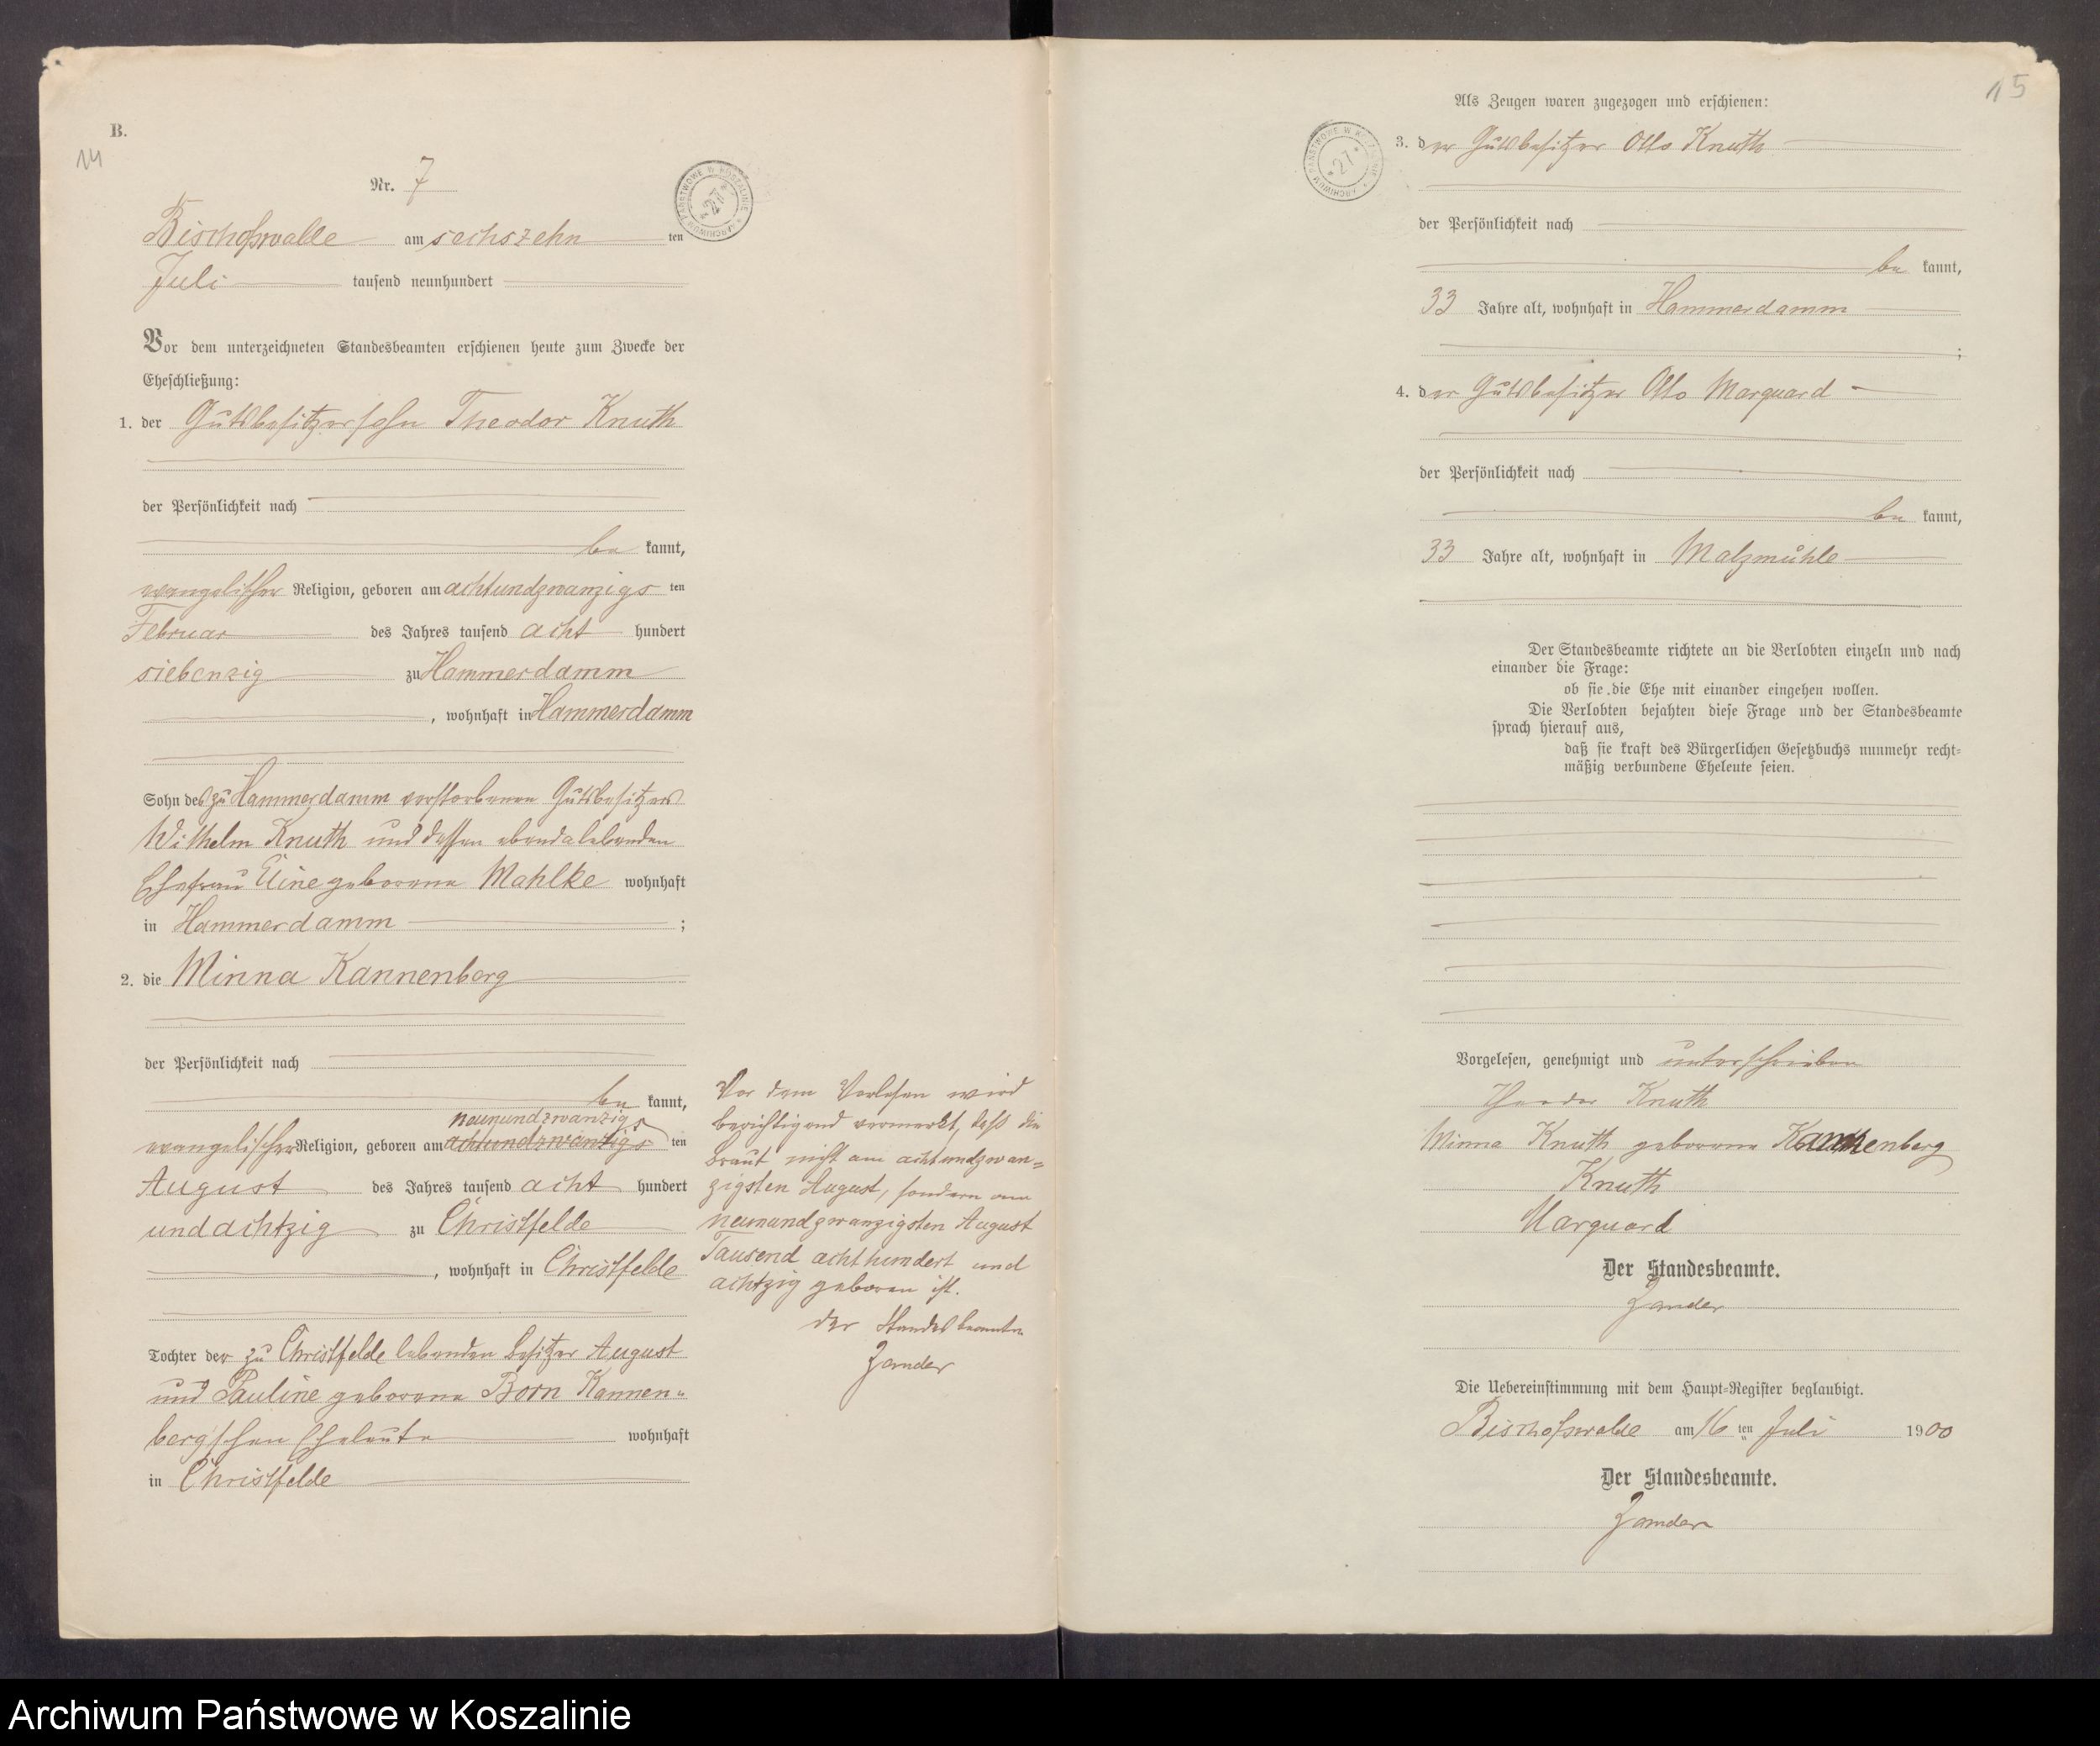 B.
14
Nr. 7
Bischofswalde am sechszehn ten
Juli tausend neunhundert
Vor dem unterzeichneten Standesbeamten erschienen heute zum Zwecke der
Eheschließung:
1. der Gutsbesitzersohn Theodor Knuth
der Persönlichkeit nach
be kannt,
evangelischer Religion, geboren am achtundzwanzigs ten
Februar des Jahres tausend acht hundert
siebenzig zu Hammerdamm
, wohnhaft in Hammerdamm
Sohn des zu Hammerdamm verstorbenen Gutsbesitzers
Wilhelm Knuth und dessen ebenda lebenden
Ehefrau geborene Mahlke wohnhaft
in Hammerdamm ;
2. die Minna Kannenberg
der Persönlichkeit nach
be kannt,
neunundzwanzigs
evangelischer Religion, geboren am achtundzwanzigs ten
August des Jahres tausend acht hundert
und achtzig zu Christfelde
, wohnhaft in Christfelde
Tochter der zu Christfelde lebenden Besitzer August
und Pauline geborene Born Kannen-
berg'schen Eheleute wohnhaft
in Christfelde
Vor dem Vorlesen wird
berichtigend vermerkt, daß die
Braut nicht am achtundzwan=
zigsten August, sondern am
neunundzwanzigsten August
Tausend achthundert und
achtzig geboren ist.
Der Standesbeamte
Zander
ARCHIWUM PAŃSTWOWE W KOSZALINIE
*27*
15
Als Zeugen waren zugezogen und erschienen:
3. der Gutsbesitzer Otto Knuth
der Persönlichkeit nach
be kannt,
33 Jahre alt, wohnhaft in Hammerdamm
;
4. der Gutsbesitzer Otto Marquard
der Persönlichkeit nach
be kannt,
33 Jahre alt, wohnhaft in Malzmühle
Der Standesbeamte richtete an die Verlobten einzeln und nach
einander die Frage:
ob sie die Ehe mit einander eingehen wollen.
Die Verlobten bejahten diese Frage und der Standesbeamte
sprach hierauf aus,
daß sie kraft des Bürgerlichen Gesetzbuchs nunmehr recht=
mäßig verbundene Eheleute seien.
Vorgelesen, genehmigt und unterschrieben
Theodor Knuth
Minna Knuth geborene Kannenberg
Knuth
Marquard
Der Standesbeamte.
Zander
Die Uebereinstimmung mit dem Haupt=Register beglaubigt.
Bischofswalde am 16 ten Juli 1900
Der Standesbeamte.
Zander
ARCHIWUM PAŃSTWOWE W KOSZALINIE
*27*
Archiwum Państwowe w Koszalinie